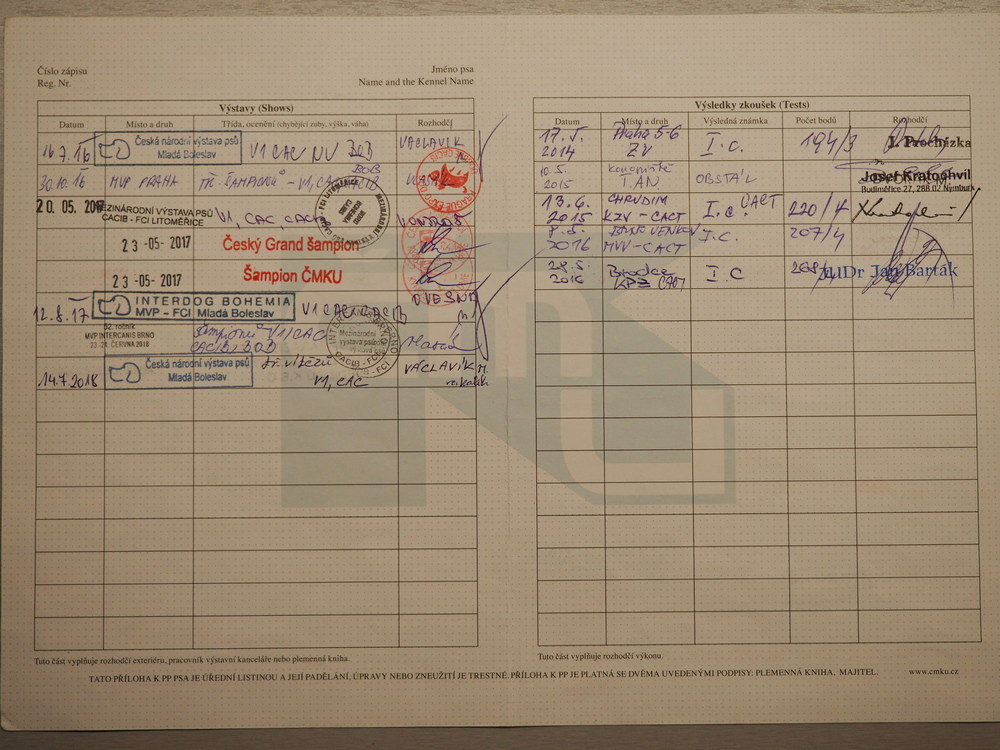 Číslo zápisu
Reg. Nr.
Jméno psa
Name and the Kennel Name
Výstavy (Shows)
Datum Místo a druh Třída, ocenění (chybějící zuby, výška, váha) Rozhodčí
16.7.16 Česká národní výstava psů
Mladá Boleslav
V1 CAC NV BOB VÁCLAVÍK
BOB
30.10.16 MVP PRAHA TŘ. ŠAMPIONŮ - V1, CAC
20. 05. MEZINÁRODNÍ VÝSTAVA PSŮ
CACIB - FCI LITOMĚŘICE
V1, CAC, CACIB
23 -05- 2017 Český Grand šampion
23 -05- 2017 Šampion ČMKU
12.8.17 INTERDOG BOHEMIA
MVP - FCI Mladá Boleslav
V1 CAC CACIB DVESNÍ
52. ročník
MVP INTERCANIS BRNO
23.-24. ČERVNA 2018
šampionů V1/CAC
CACIB, BOB
14.7.2018 Česká národní výstava psů
Mladá Boleslav
tř. vítězů
V1, CAC
VÁCLAVÍK M.
Tuto část vyplňuje rozhodčí exteriéru, pracovník výstavní kanceláře nebo plemenná kniha.
Výsledky zkoušek (Tests)
Datum Místo a druh Výsledná známka Počet bodů Rozhodčí
17. 5.
2014
Praha 5-6
ZV
I. c. 194/3 J. Procházka
10.5.
2015
OBSTÁL
Josef Kratochvíl
Budiměřice 27, 288 02 Nymburk
13. 6.
2015
CHRUDIM
KZV - CACT
I. c. CACT 220/4
8. 5.
2016
MVV - CACT
I. c. 207/4
28.5.
2016
Brodce
KPZ
I. c MUDr Jan Barták
Tuto část vyplňuje rozhodčí výkonu.
TATO PŘÍLOHA K PP PSA JE ÚŘEDNÍ LISTINOU A JEJÍ PADĚLÁNÍ, ÚPRAVY NEBO ZNEUŽITÍ JE TRESTNÉ. PŘÍLOHA K PP JE PLATNÁ SE DVĚMA UVEDENÝMI PODPISY: PLEMENNÁ KNIHA, MAJITEL.
www.cmku.cz